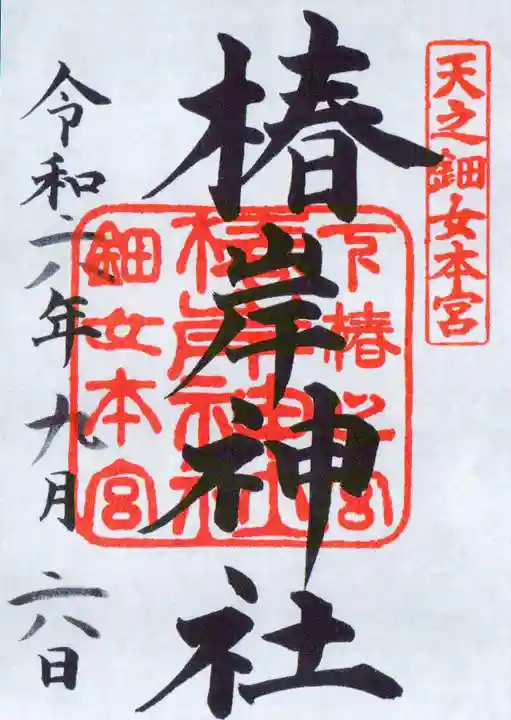 天之鈿女本宮
椿岸神社
下椿 宮
椿岸神社
鈿女本宮
令和六年九月六日